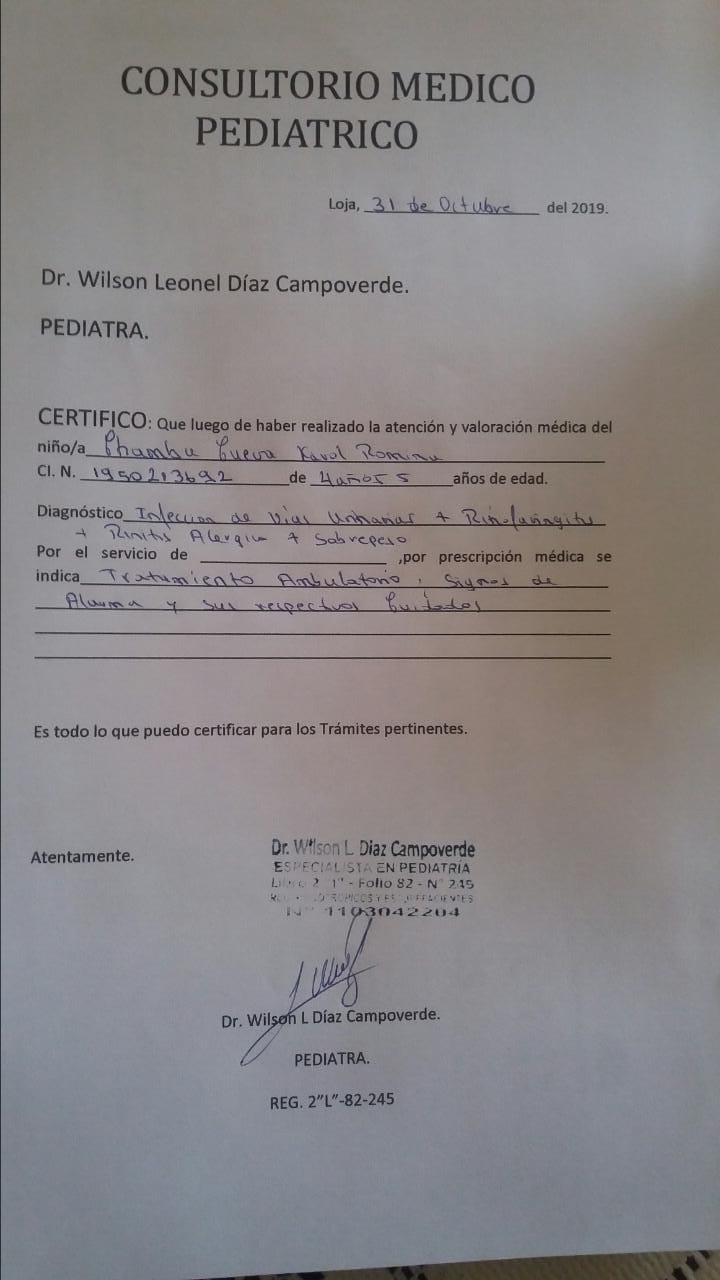 CONSULTORIO MEDICO
PEDIATRICO
Loja, 31 de Octubre del 2019.
Dr. Wilson Leonel Díaz Campoverde.
PEDIATRA.
CERTIFICO: Que luego de haber realizado la atención y valoración médica del
niño/a Chamba Cueva Karol Romina
CI. N. 1950213692 de 4 años 5 años de edad.
Diagnóstico Infeccion de Vias Urinarias + Rinofaringitis
+ Rinitis Alergica + Sobrepeso
Por el servicio de ,por prescripción médica se
indica Tratamiento Ambulatorio, Signos de
Alarma y sus respectivos Cuidados
Es todo lo que puedo certificar para los Trámites pertinentes.
Atentamente.
Dr. Wilson L Diaz Campoverde
ESPECIALISTA EN PEDIATRIA
Folio 82 - N° 245
N° 1103042204
Dr. Wilson L Díaz Campoverde.
PEDIATRA.
REG. 2”L”-82-245